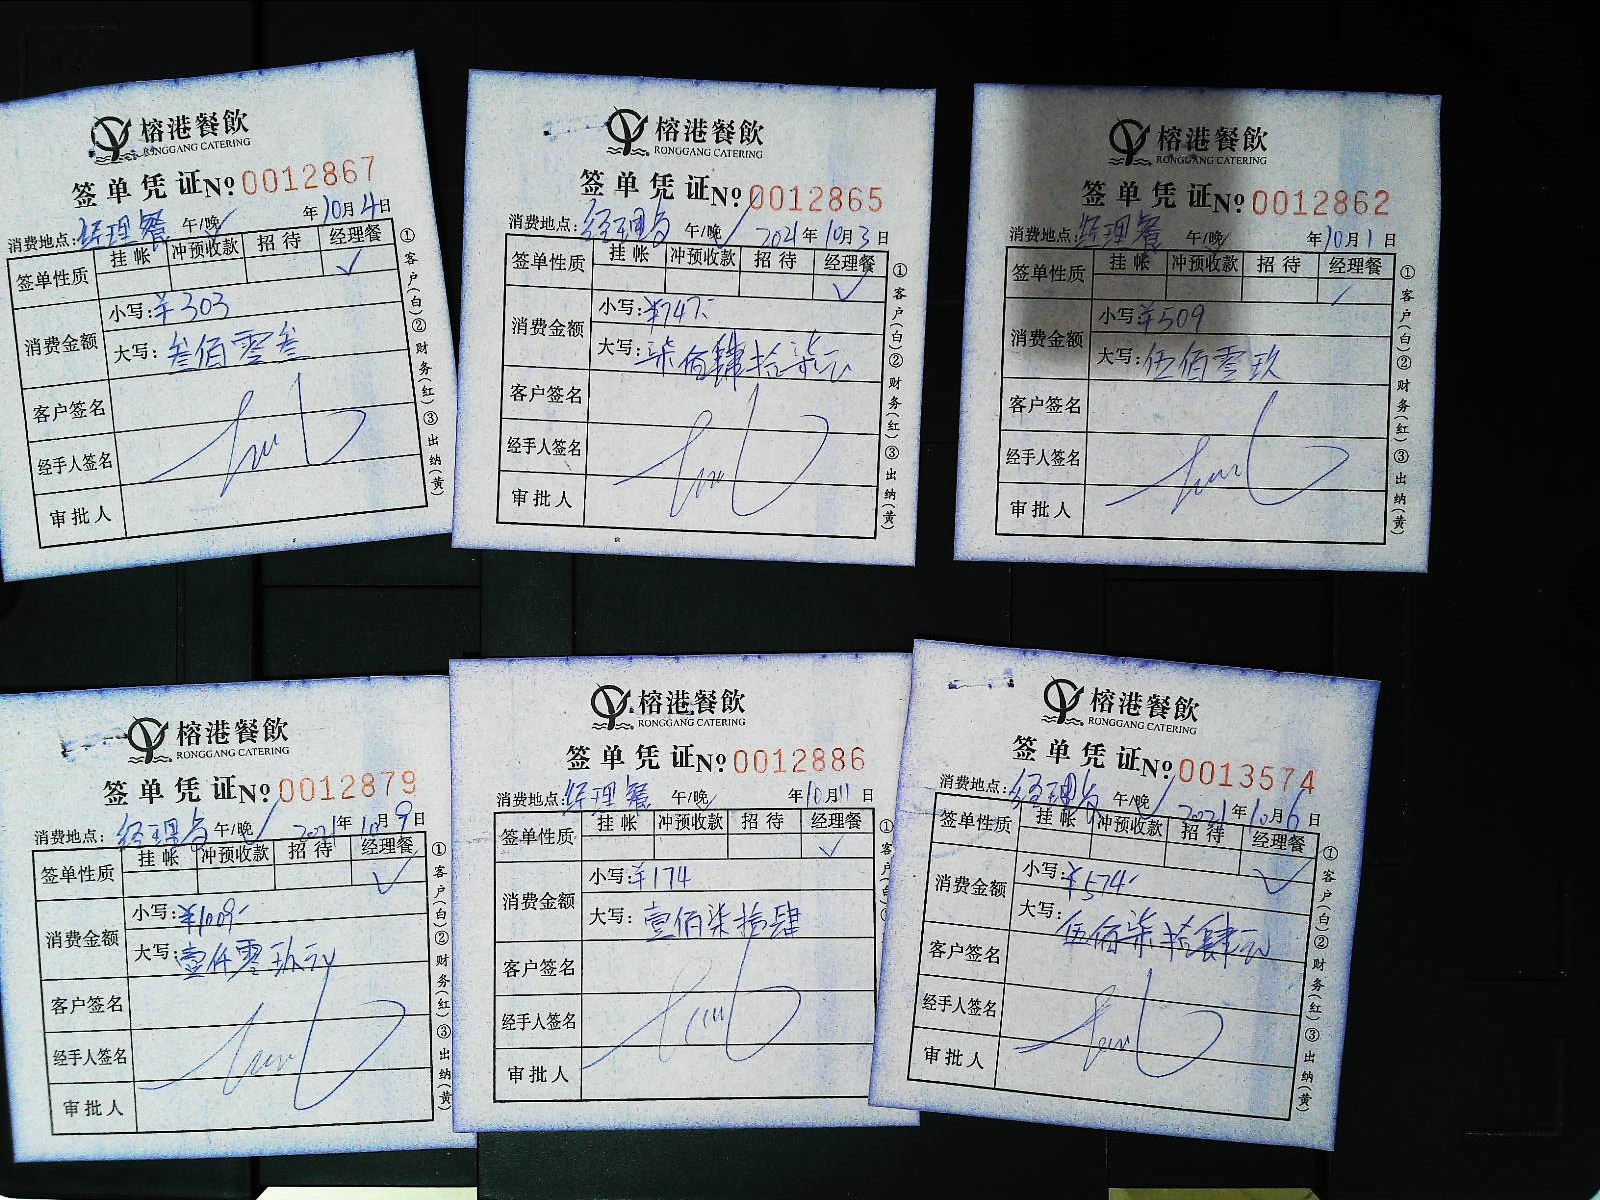 榕港餐飲
RONGGANG CATERING
签单凭证 No. 0012867
消费地点: 经理餐 午/晚 年10月4日
签单性质 挂帐 冲预收款 招待 经理餐
✓
消费金额 小写: ¥303
大写: 叁佰零叁
客户签名
经手人签名
审批人
①客户(白)②财务(红)③出纳(黄)
榕港餐飲
RONGGANG CATERING
签单凭证 No. 0012865
消费地点: 经理 午/晚 2021年10月3日
签单性质 挂帐 冲预收款 招待 经理餐
✓
消费金额 小写: ¥747.-
大写: 柒佰肆拾柒元
客户签名
经手人签名
审批人
①客户(白)②财务(红)③出纳(黄)
榕港餐飲
RONGGANG CATERING
签单凭证 No. 0012862
消费地点: 经理餐 午/晚 年10月1日
签单性质 挂帐 冲预收款 招待 经理餐
✓
消费金额 小写: ¥509
大写: 伍佰零玖
客户签名
经手人签名
审批人
①客户(白)②财务(红)③出纳(黄)
榕港餐飲
RONGGANG CATERING
签单凭证 No. 0012879
消费地点: 经理 午/晚 2021年10月9日
签单性质 挂帐 冲预收款 招待 经理餐
✓
消费金额 小写: ¥1009.-
大写: 壹仟零玖元
客户签名
经手人签名
审批人
①客户(白)②财务(红)③出纳(黄)
榕港餐飲
RONGGANG CATERING
签单凭证 No. 0012886
消费地点: 经理餐 午/晚 年10月11日
签单性质 挂帐 冲预收款 招待 经理餐
✓
消费金额 小写: ¥174
大写: 壹佰柒拾肆
客户签名
经手人签名
审批人
①客户(白)
榕港餐飲
RONGGANG CATERING
签单凭证 No. 0013574
消费地点: 经理 午/晚 2021年10月6日
签单性质 挂帐 冲预收款 招待 经理餐
✓
消费金额 小写: ¥574.-
大写: 伍佰柒拾肆元
客户签名
经手人签名
审批人
①客户(白)②财务(红)③出纳(黄)